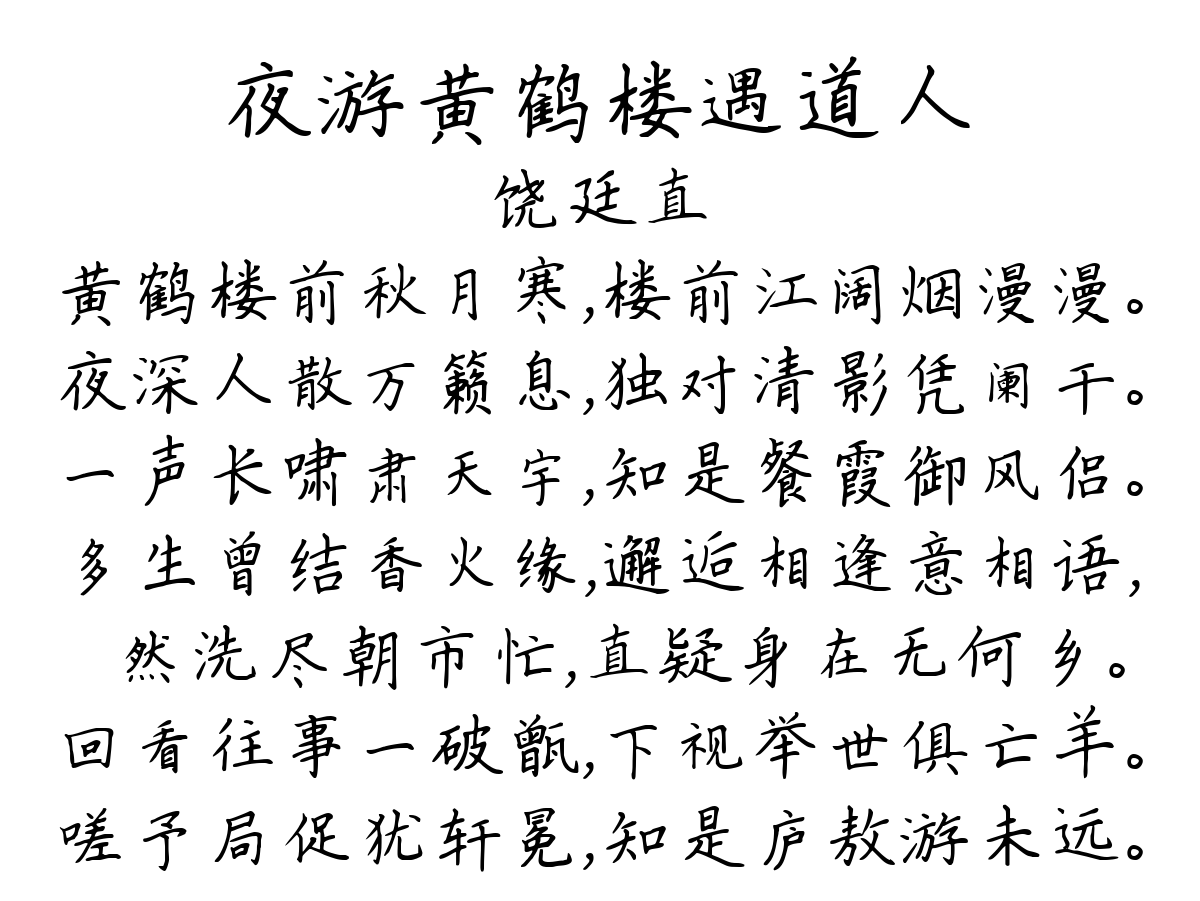 夜游黄鹤楼遇道人
饶廷直
黄鹤楼前秋月寒,楼前江阔烟漫漫。
夜深人散万籁息,独对清影凭阑干。
一声长啸肃天宇,知是餐霞御风侣。
多生曾结香火缘,邂逅相逢意相语,
然洗尽朝市忙,直疑身在无何乡。
回看往事一破甑,下视举世俱亡羊。
嗟予局促犹轩冕,知是庐敖游未远。